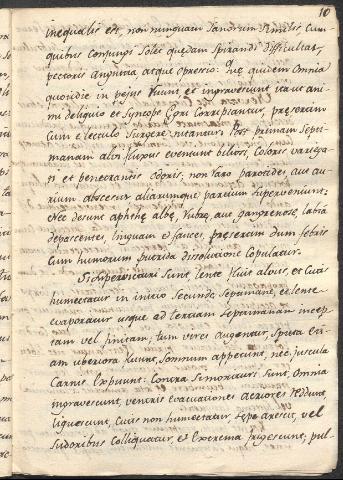 10
inequalis est, non nunquam sandrum similis cum
quibus conjungi solet quædam spirandi difficultas,
pectoris angustia, atque opressio: quæ quidem omnia
quotidie in pejus ruunt, et ingravescunt ita ut ani
mi deliquio et syncope ægri corripiantur, præsertim
cum è lecculo surgere nitantur. Post primam septi
manam alvi fluxus eveniunt biliosi, coloris variega
ti et odoris, non raro parotides, aut au
rium abscessus aliarumque partium superveniunt.
Nec desunt aphthæ albæ, rubræ, aut gangrenosæ, labia
depascentes, linguam et fauces, præsertim dum febris
cum humorum putrida dissolutione copulatur.
Si superaturi sunt, lente fluit alvus, et cutis
humectatur in initio secundæ septimanæ, et lente
evaporatur usque ad tertiam septimanam incep
tam vel finitam; tum vires augentur, sputa eti
am uberiora fluunt, somnum appetunt, nec juscula
carnis expuunt: contra si morituri sunt, omnia
ingravescunt, ventris evacuationes acriores redduntur
liquescunt, cutis non humectatur, sepe arescit, vel
sudoribus colliquatur, et extrema frigescunt; pul-